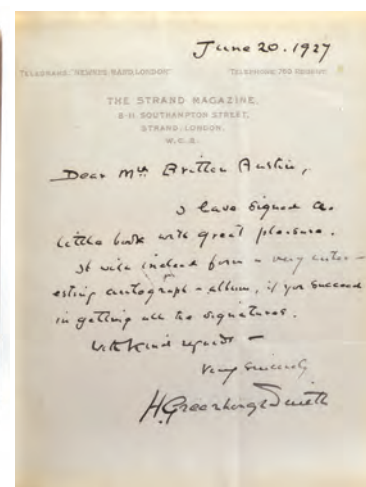 June 20. 1927
TELEGRAMS, "NEWNES, RAND, LONDON"
TELEPHONE 760
THE STRAND MAGAZINE,
8-11, SOUTHAMPTON STREET,
STRAND, LONDON,
W.C.2.
Dear Mrs Britten Austin,
I have signed the
little book with great pleasure.
It will indeed form a very inter-
esting autograph-album, if you succeed
in getting all the signatures.
With kind regards —
Very sincerely
H. Greenhough Smith